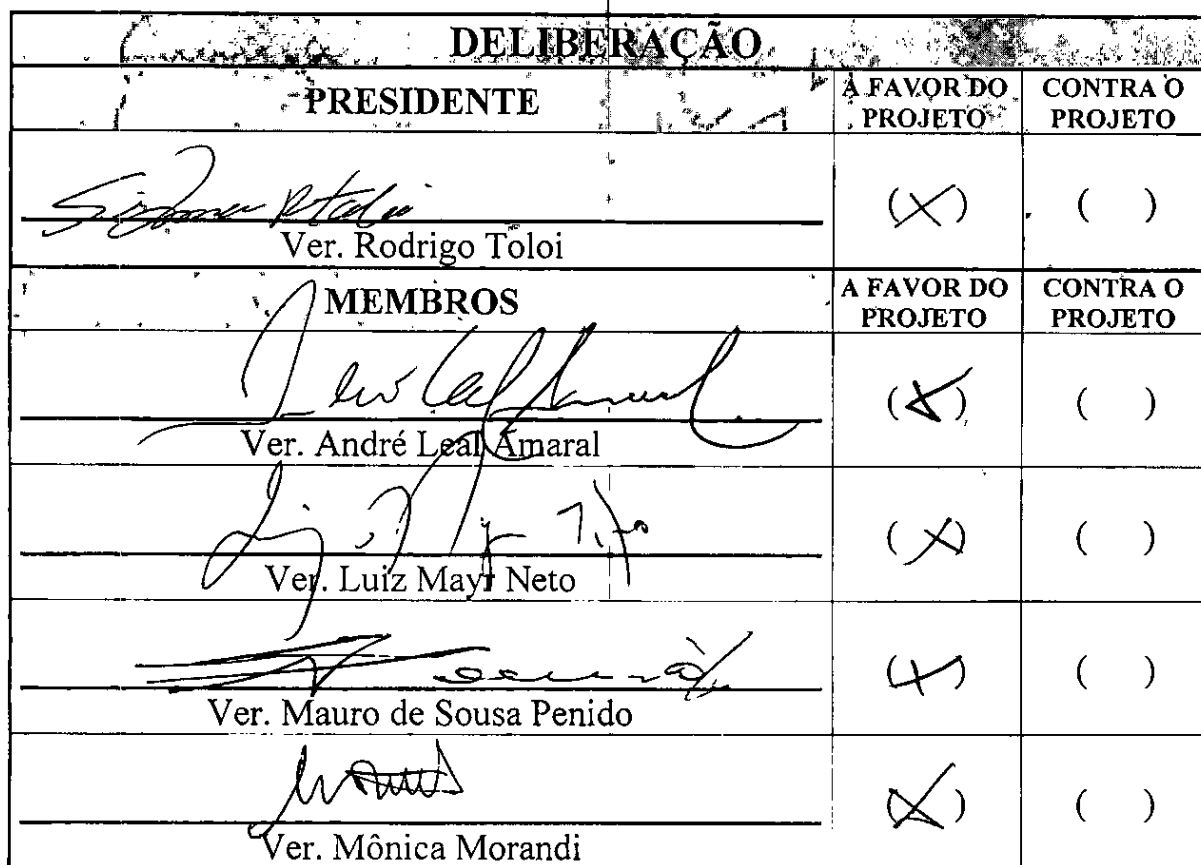 DELIBERAÇÃO
PRESIDENTE A FAVOR DO PROJETO CONTRA O PROJETO
(X) ( )
Ver. Rodrigo Toloi
MEMBROS A FAVOR DO PROJETO CONTRA O PROJETO
(X) ( )
Ver. André Leal Amaral
(X) ( )
Ver. Luiz Mayr Neto
(X) ( )
Ver. Mauro de Sousa Penido
(X) ( )
Ver. Mônica Morandi